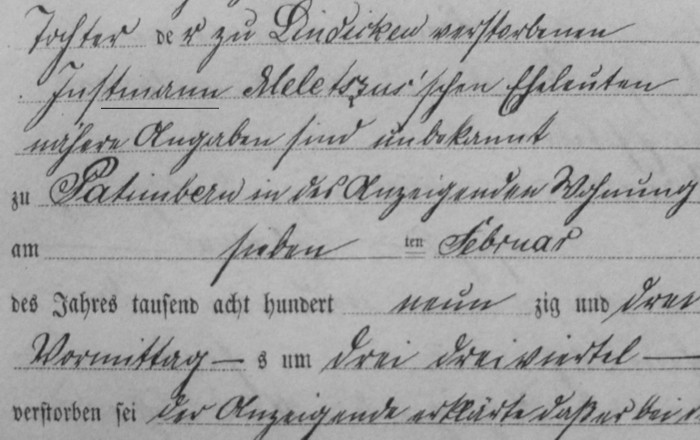 Tochter der zu Lindicken verstorbenen
Instmann Meletszus'schen Eheleuten
nähere Angaben sind unbekannt
zu Patimbern in des Anzeigenden Wohnung
am sieben ten Februar
des Jahres tausend acht hundert neun zig und drei
Vormittag s um drei dreiviertel
verstorben sei der Anzeigende erklärte daß er bei